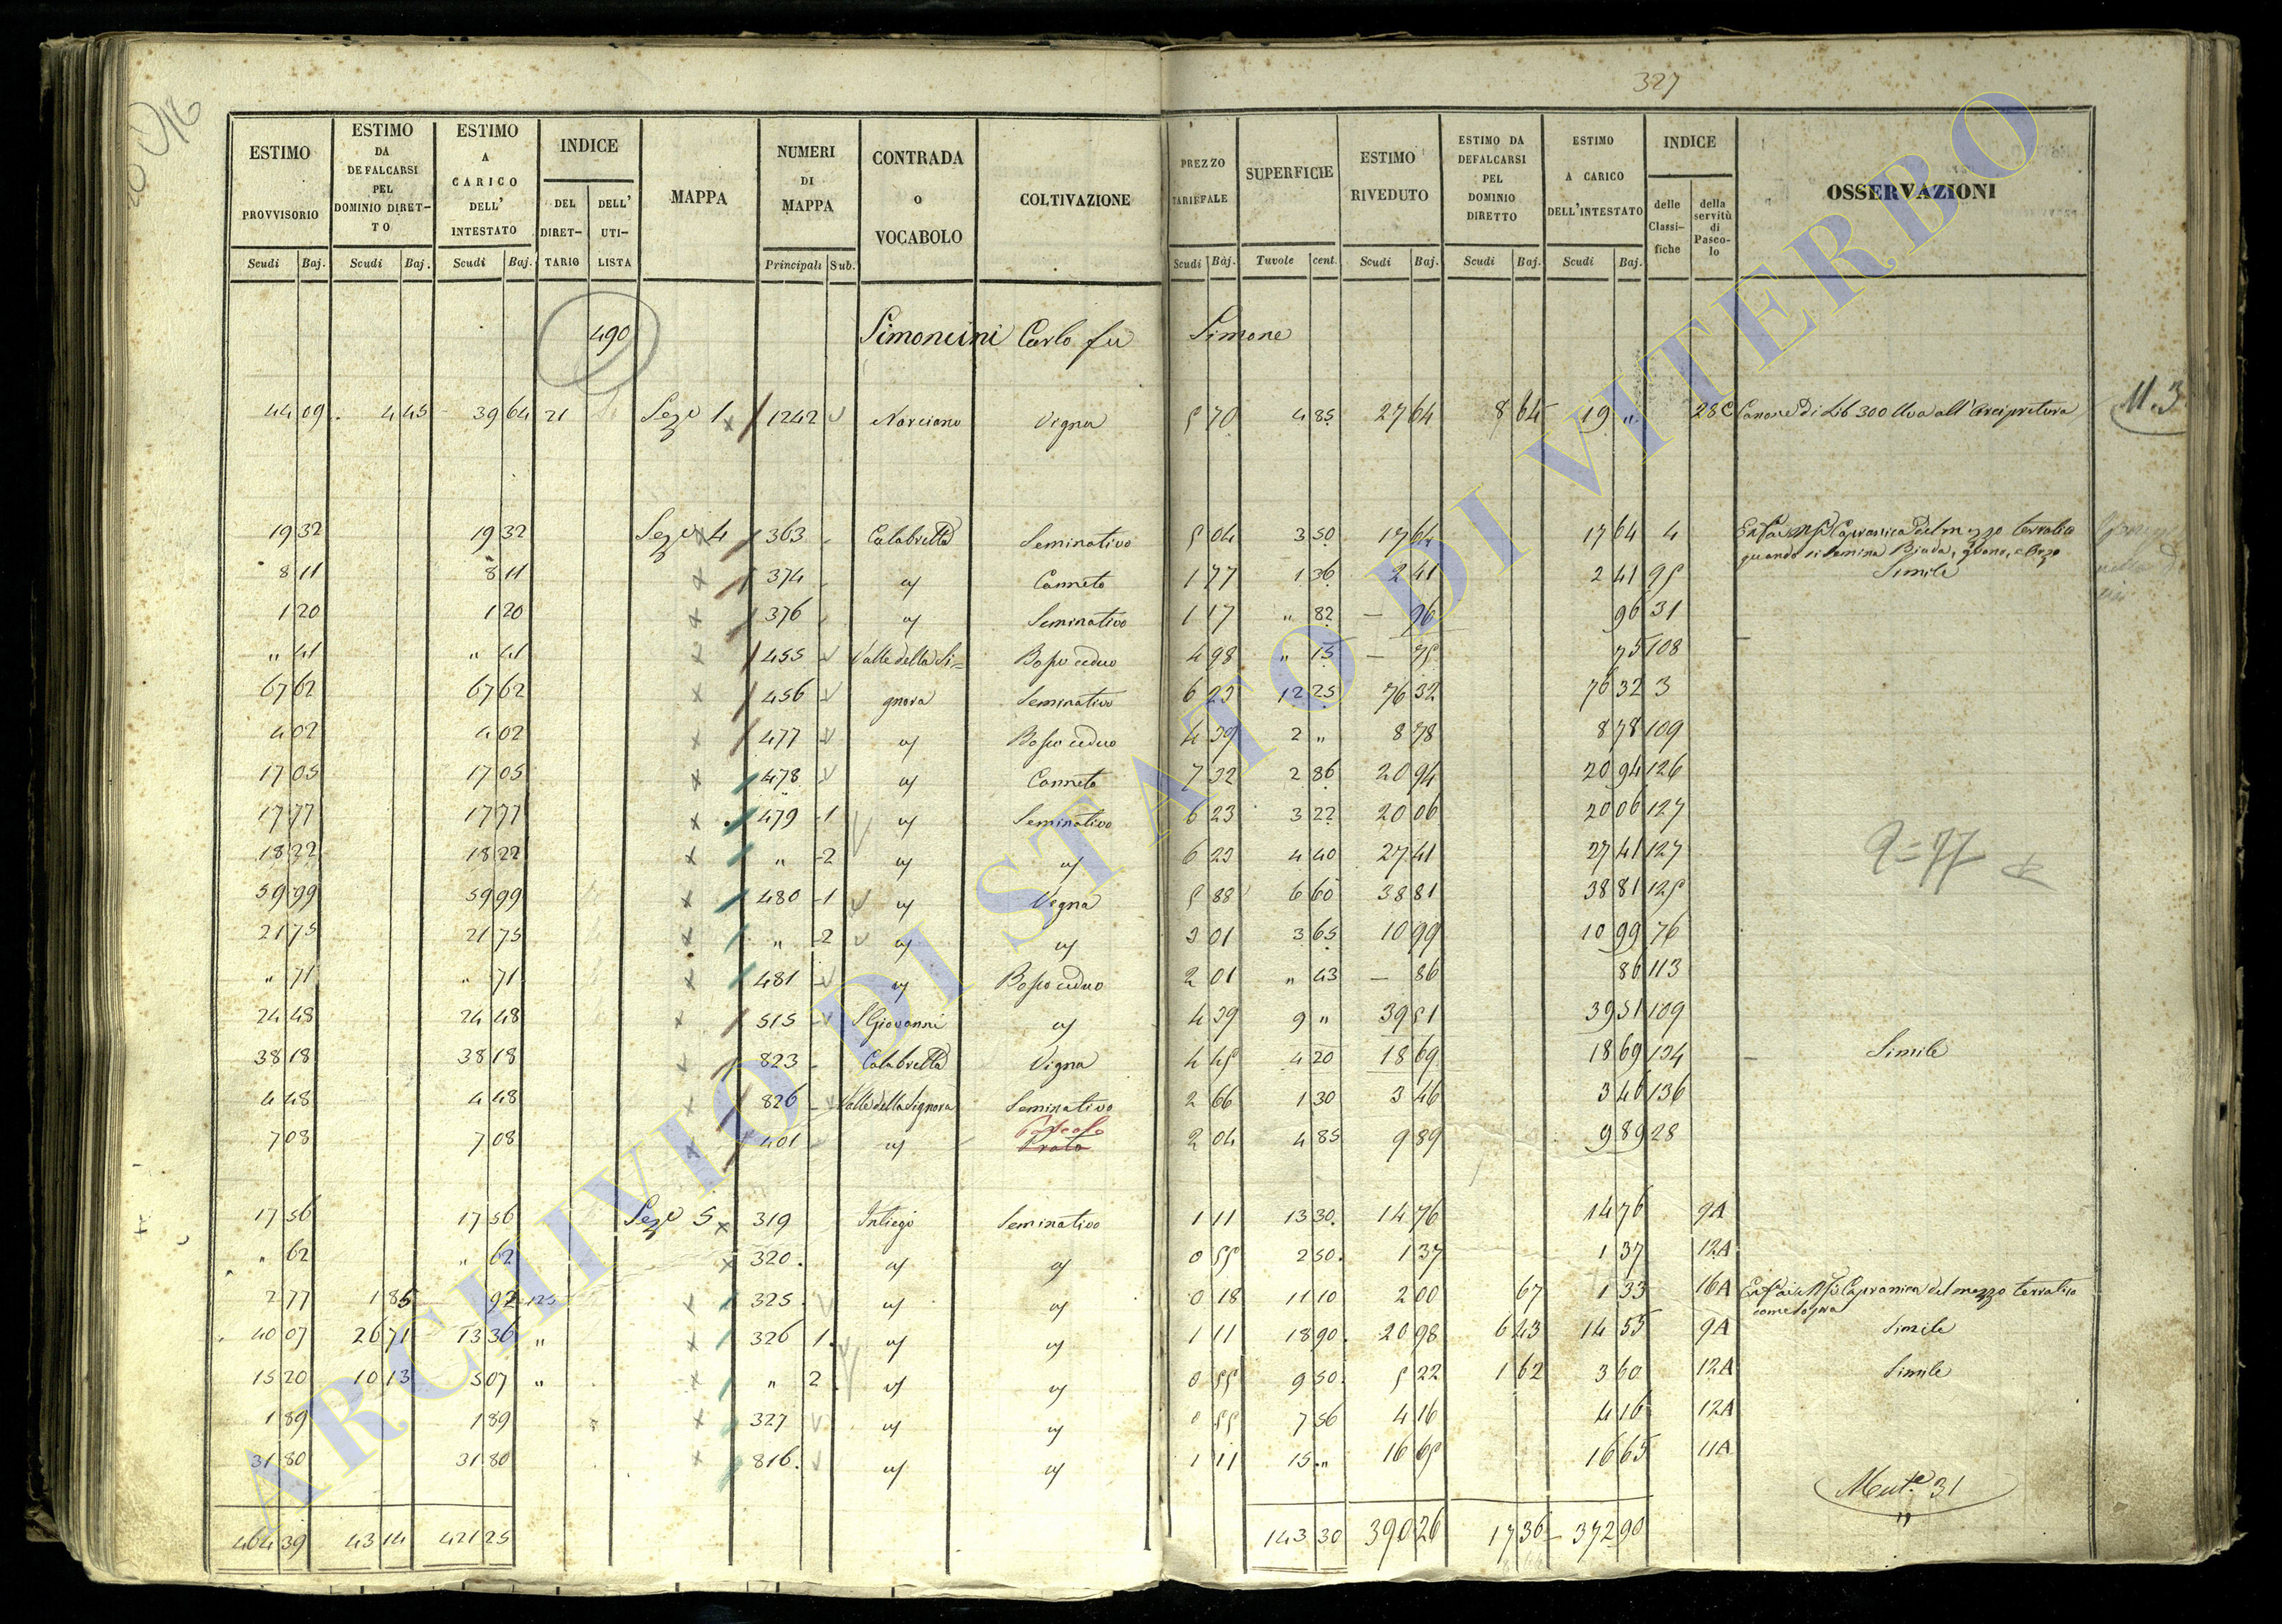 327
ESTIMO PROVVISORIO | ESTIMO DA DEFALCARSI PEL DOMINIO DIRETTO | ESTIMO A CARICO DELL' INTESTATO | INDICE DEL DIRETTARIO | DELL' UTILISTA | MAPPA | NUMERI DI MAPPA | CONTRADA o VOCABOLO | COLTIVAZIONE | PREZZO TARIFFALE | SUPERFICIE | ESTIMO RIVEDUTO | ESTIMO DA DEFALCARSI PEL DOMINIO DIRETTO | ESTIMO A CARICO DELL'INTESTATO | INDICE delle Classifiche | della servitù di Pascolo | OSSERVAZIONI
Scudi Baj. | Scudi Baj. | Scudi Baj. | Principali Sub. | Scudi Bàj. | Tavole cent. | Scudi Baj. | Scudi Baj. | Scudi Baj.
490 Simoncini Carlo fu Simone
44 09 4 45 39 64 21 Sez. 1 1242 Narciano Vigna 5 70 4 85 27 64 8 64 19 " 28C Canone di Lib 300 Uva all'Arcipretura
11.3
19 32 19 32 Sez. 4 363 Calabrella Seminativo 5 04 3 50 17 64 17 64 4
quando si semina Biada,
8 11 8 11 374 " Canneto 1 77 1 36 2 41 2 41 95 Simile
1 20 1 20 376 " Seminativo 1 17 " 82 — 96 96 31
" 41 " 41 455 Valle della Si= Bosco ceduo 4 98 " 15 — 75 75 108
67 62 67 62 456 gnora Seminativo 6 23 12 25 76 32 76 32 3
4 02 4 02 477 " Bosco ceduo 4 39 2 " 8 78 8 78 109
17 05 17 05 478 " Canneto 7 32 2 86 20 94 20 94 126
17 77 17 77 479 1 " Seminativo 6 23 3 22 20 06 20 06 127
18 22 18 22 " 2 " " 6 23 4 40 27 41 27 41 127
59 99 59 99 480 1 " Vigna 5 88 6 60 38 81 38 81 125
21 75 21 75 " 2 " " 3 01 3 65 10 99 10 99 76
" 71 " 71 481 " Bosco ceduo 2 01 " 43 — 86 86 113
24 48 24 48 515 S Giovanni " 4 39 9 " 39 51 39 51 109
38 18 38 18 823 Calabrella Vigna 4 45 4 20 18 69 18 69 134 Simile
4 48 4 48 826 Valle della Signora Seminativo 2 66 1 30 3 46 3 46 136
7 08 7 08 401 " Pascolo Prato 2 04 4 85 9 89 9 89 28
17 56 17 56 Sez. 5 319 Seminativo 1 11 13 30 14 76 14 76 9A
" 62 " 62 320 " " 0 55 2 50 1 37 1 37 12A
2 77 1 85 92 125 325 " " 0 18 11 10 2 00 67 1 33 16A
come sopra
40 07 26 71 13 36 " 326 1 " " 1 11 18 90 20 98 6 43 14 55 9A Simile
15 20 10 13 5 07 " " 2 " " 0 55 9 50 5 22 1 62 3 60 12A Simile
1 89 1 89 327 " " 0 55 7 56 4 16 4 16 12A
31 80 31 80 816 " " 1 11 15 " 16 65 16 65 11A
464 39 43 14 421 25 143 30 390 26 17 36 372 90
Mut.e 31
ARCHIVIO DI STATO DI VITERBO